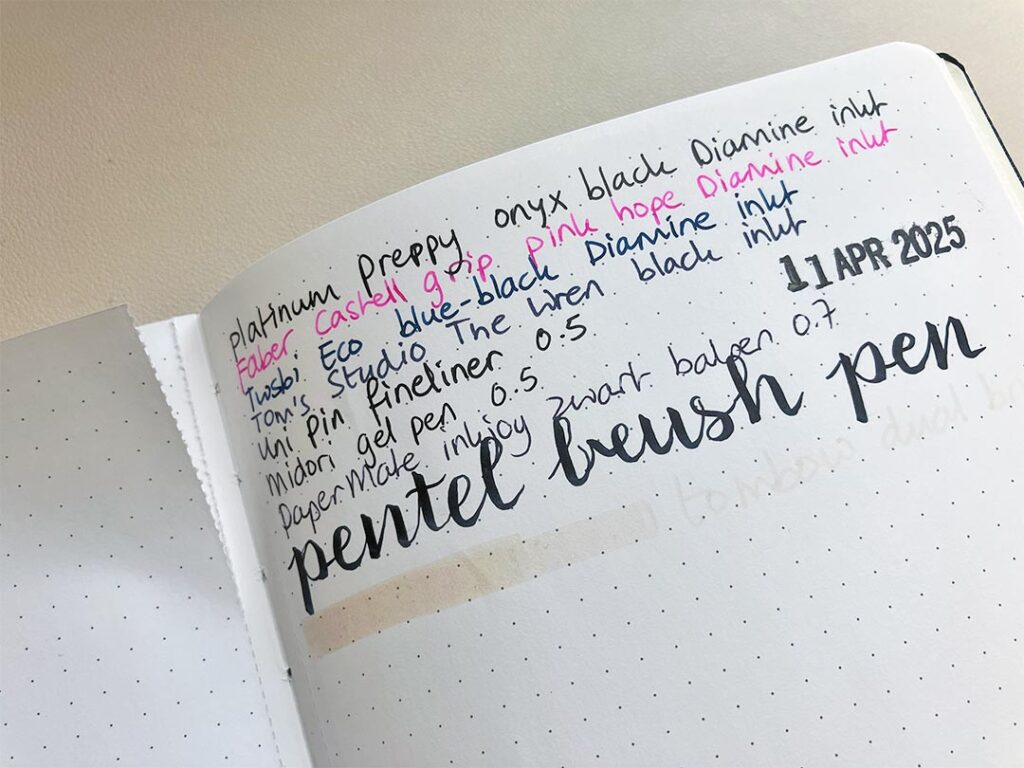 platinum preppy onyx black Diamine inkt
Faber Castell grip pink hope Diamine inkt
Twsbi Eco blue-black Diamine inkt
Tom's Studio The Wren black inkt
11 APR 2025
uni pin fineliner 0.5
midori gel pen 0.5
PaperMate inkjoy zwart balpen 0.7
pentel brush pen
tombow dual